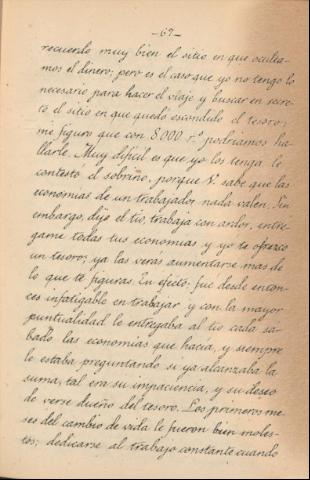 -67-
recuerdo muy bien el sitio en que oculta-
mos el dinero; pero es el caso que yo no tengo lo
necesario para hacer el viaje y buscar en secre-
to el sitio en que quedó escondido el tesoro;
me figuro que con 8.000 r.ˢ podríamos ha-
llarle. Muy dificil es que yo los tenga le
contestó el sobrino, porque V. sabe que las
economías de un trabajador nada valen. Sin
embargo, dijo el tío, trabaja con ardor, entré-
game todas tus economías y yo te ofrezco
un tesoro; ya las verás aumentarse mas de
lo que te figuras. En efecto, fué desde enton-
ces infatigable en trabajar y con la mayor
puntualidad le entregaba al tío cada sá-
bado las economías que hacía, y siempre
le estaba preguntando si ya alcanzaba la
suma, tal era su impaciencia, y su deseo
de verse dueño del tesoro. Los primeros me-
ses del cambio de vida le fueron bien moles-
tos; dedicarse al trabajo constante cuando